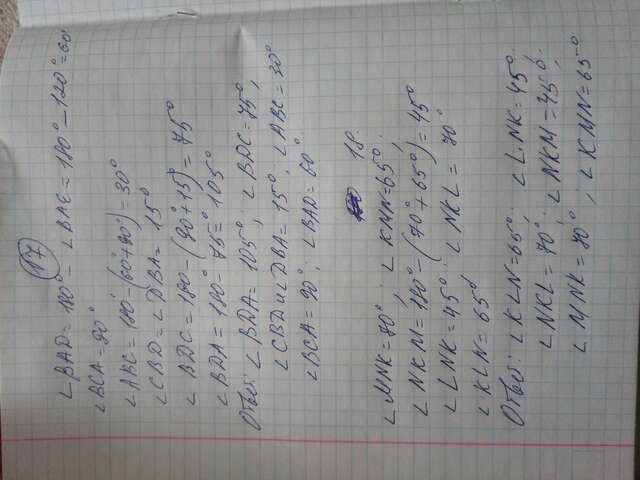 17
∠BAD = 180° - ∠BAE = 180° - 120° = 60°
∠BCA = 90°
∠ABC = 180 - (60° + 90°) = 30°
∠CBD = ∠DBA = 15°
∠BDC = 180 - (90° + 15°) = 75°
∠BDA = 180° - 75° = 105°
Ответ: ∠BDA = 105°; ∠BDC = 75°;
∠CBD и ∠DBA = 15°; ∠ABC = 30°
∠BCA = 90°; ∠BAD = 60°
18.
∠MNK = 70°; ∠KMN = 65°;
∠NKM = 180° - (70° + 65°) = 45°
∠LNK = 45°; ∠NKL = 70°
∠KLN = 65°
Ответ: ∠KLN = 65°; ∠LNK = 45°
∠NKL = 70°; ∠NKM = 45°;
∠MNK = 70°; ∠KMN = 65°